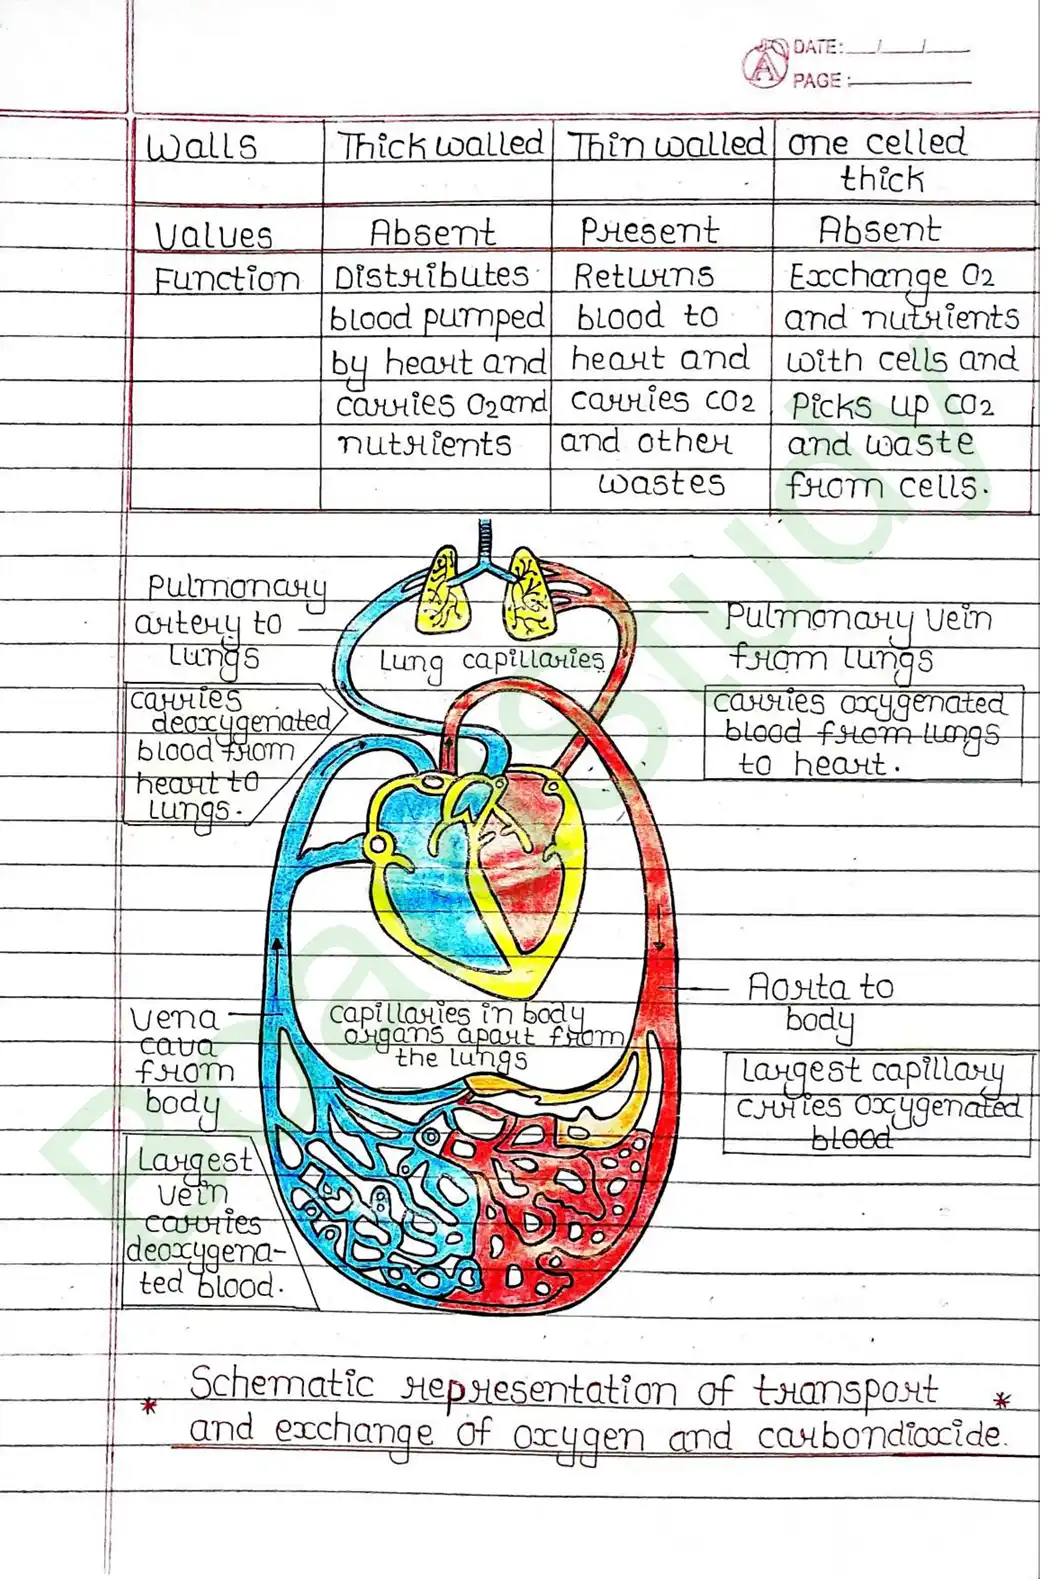 DATE: __/__/__
PAGE:
Walls | Thick walled | Thin walled | one celled
thick
Values | Absent | Present | Absent
Function | Distributes | Returns | Exchange O2
blood pumped | blood to | and nutrients
by heart and | heart and | with cells and
carries O2 and | carries CO2 | Picks up CO2
nutrients | and other | and waste
wastes | from cells.
Pulmonary
artery to
Lungs
Lung capillaries
Pulmonary vein
from lungs
carries
deoxygenated
blood from
heart to
Lungs.
carries oxygenated
blood from lungs
to heart.
vena
cava
from
body
capillaries in body
organs apart from
the lungs
Aorta to
body
Largest capillary
crries oxygenated
blood
Largest
vein
carries
deoxygena-
ted blood.
* Schematic representation of transport *
and exchange of oxygen and carbondioxide.